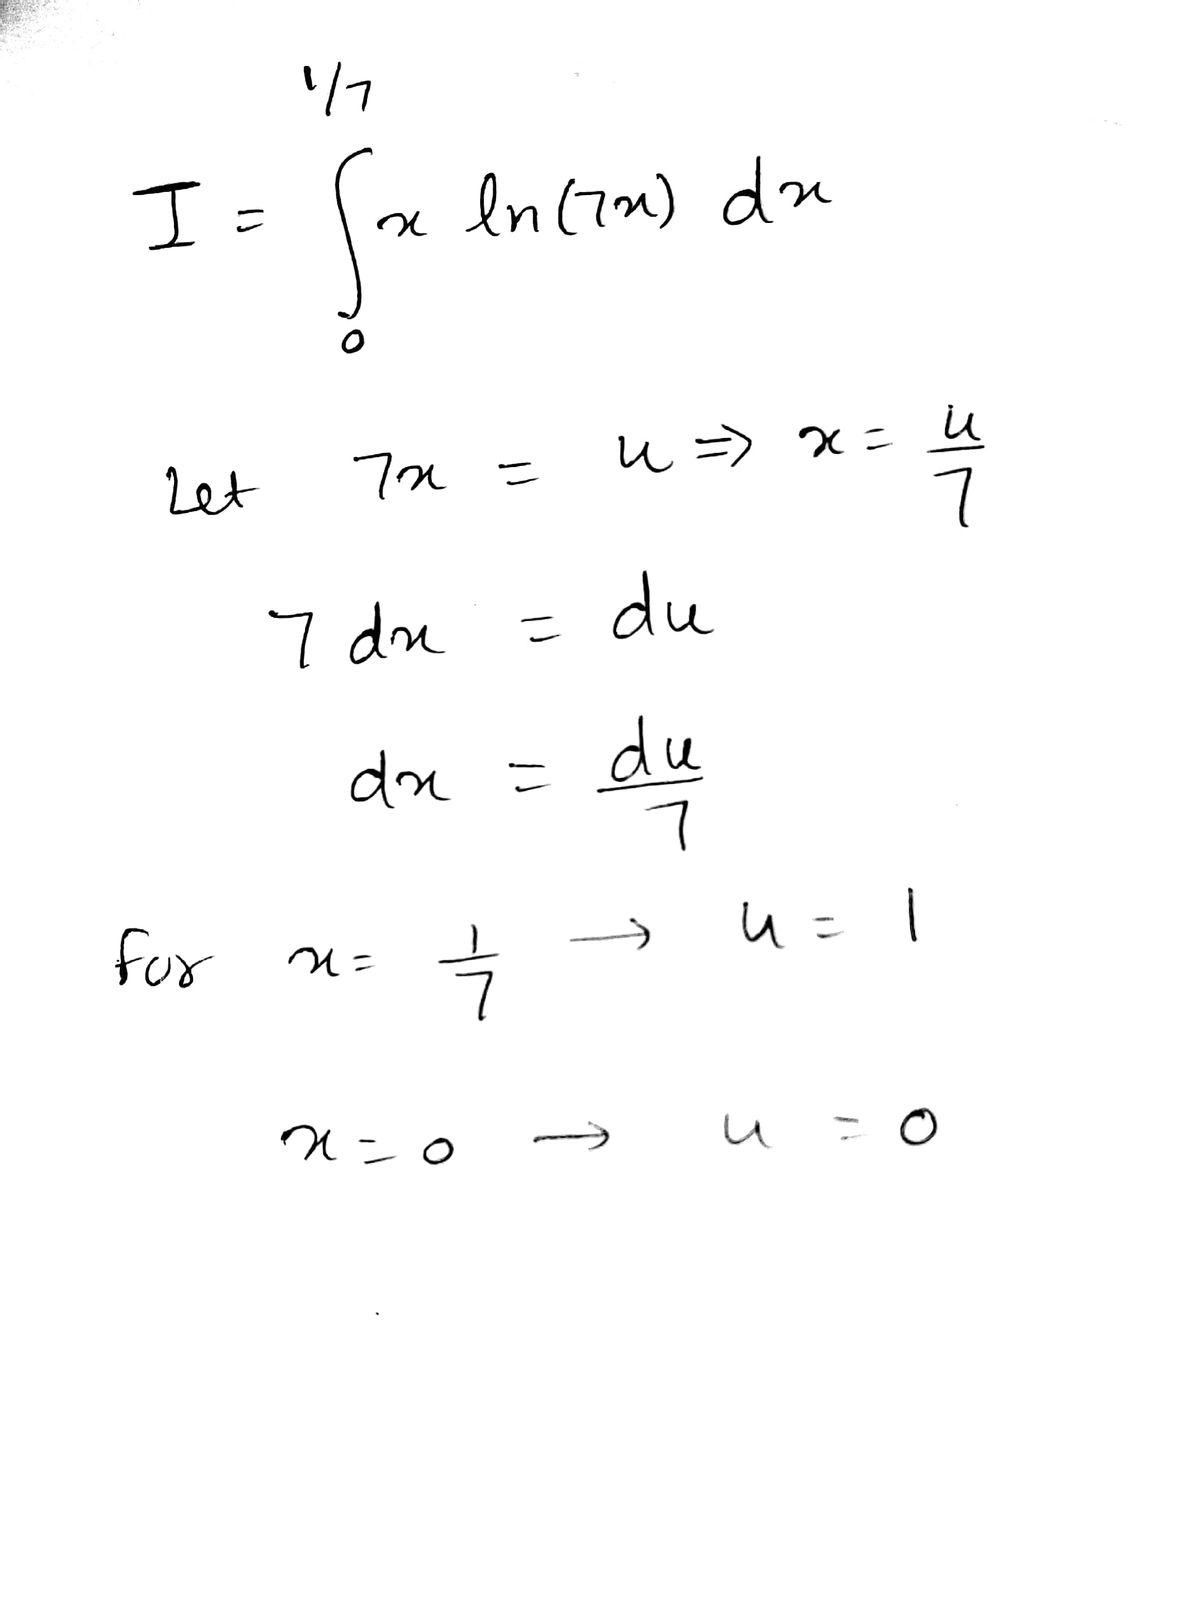 I = ∫₀^{1/7} x ln(7x) dx
Let 7x = u ⇒ x = u/7
7 dx = du
dx = du/7
For x = 1/7 → u = 1
x = 0 → u = 0